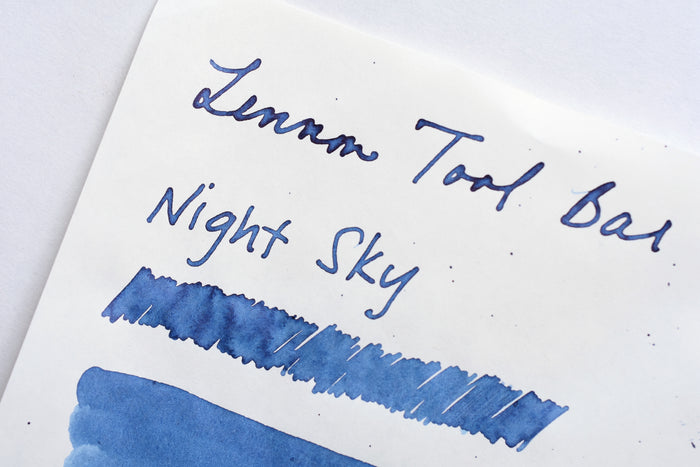 Lennon Tool Bar
Night Sky